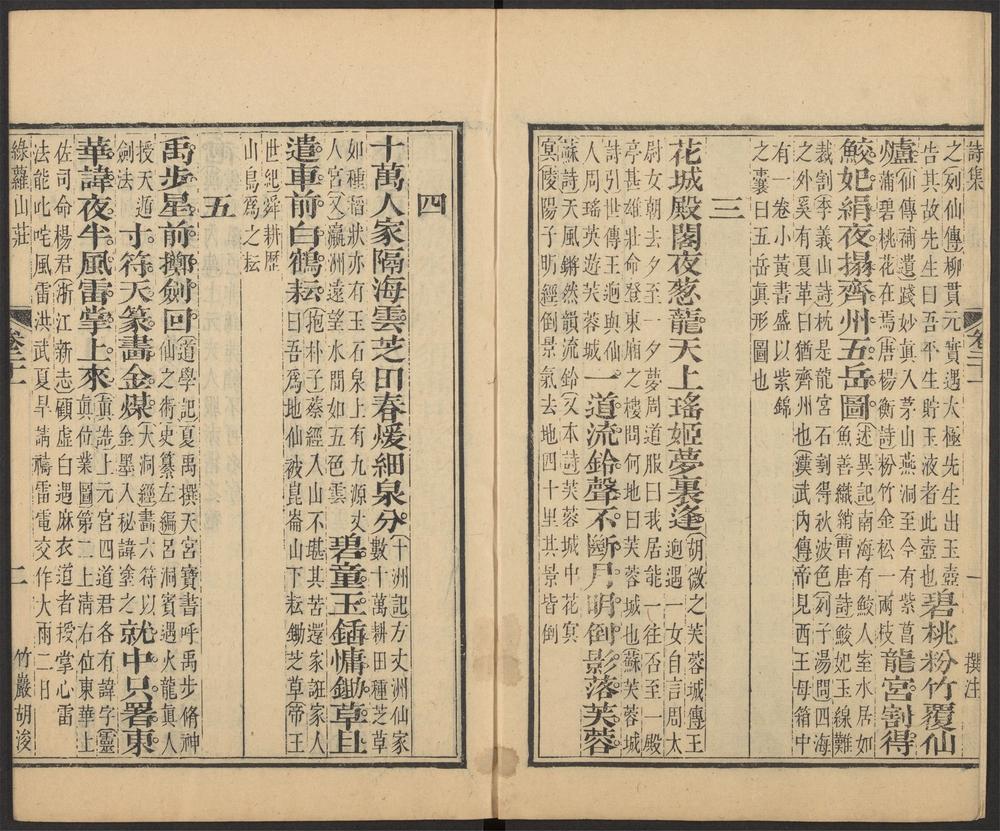 詩集 一 撰注
之(列仙傳柳貫元實遇太極先生出玉壺
告其故先生曰吾平生貯玉液者此壺也
碧桃粉竹覆仙
爐
(仙傳補遺踐妙真人茅山燕洞至今有紫菖
蒲碧桃花在焉(唐楊衡詩粉竹金松一兩枝
龍宮割得
鮫妃絹夜搨齊州五岳圖
(述異記)南海有鮫人室水居如
魚善織綃(曹唐詩鮫妃玉線難
裁割(李義山詩枕是龍宮石割得秋波色(列子湯問四海
之外奚有夏革曰猶齊州也(漢武內傳帝見西王母箱中
有一卷小黃書盛以紫錦
之囊曰五岳真形圖也
三
花城殿閣夜葱龍天上瑤姬夢裏逢
(胡微之芙蓉城傳)王
迥遇一女自言周太
尉女朝去夕至一夕夢周道服曰我居能一往否至一殿
亭甚雄壯命登東廂之樓問何地曰芙蓉城也(蘇芙蓉城
詩引世傳王迥與仙
人周瑤英遊芙蓉城
一道流鈴聲不斷月明倒影落芙蓉
蘇詩天風鏘然韻流鈴(又本詩芙蓉城中花冥
冥(陵陽子明經倒景氣去地四十里其景皆倒
四
十萬人家隔海雲芝田春煖細泉分
(十洲記方丈洲仙家
數十萬耕田種芝草
如種稻狀亦有玉石泉上有九源丈
人宮(又)瀛洲遠望水間如五色雲
碧童玉鍤慵鋤草且
遣車前白鶴耘
(抱朴子蔡經入山不堪其苦還家誑家人
曰吾爲地仙被崑崙山下耘鋤芝草(帝王
世紀舜耕歷
山鳥爲之耘
五
禹步星前擲劍回
(道學記夏禹撰天宮寶書呼禹步脩神
仙之術(史纂左編)呂洞賓遇火龍真人
授天遁
劍法
寸符天篆畫金煤
(大洞經書六符以
金墨人秘諱塗之
就中只署東
華諱夜半風雷掌上來
(真誥上元宮四道君各有諱字(靈
真位業圖)第二上清右位東華上
佐司命楊君(浙江新志顧虛白遇麻衣道者授掌心雷
法能叱咤風雷洪武夏旱請禱雷電交作大雨二日
綠蘿山莊 卷二十一 二 竹巖胡浚